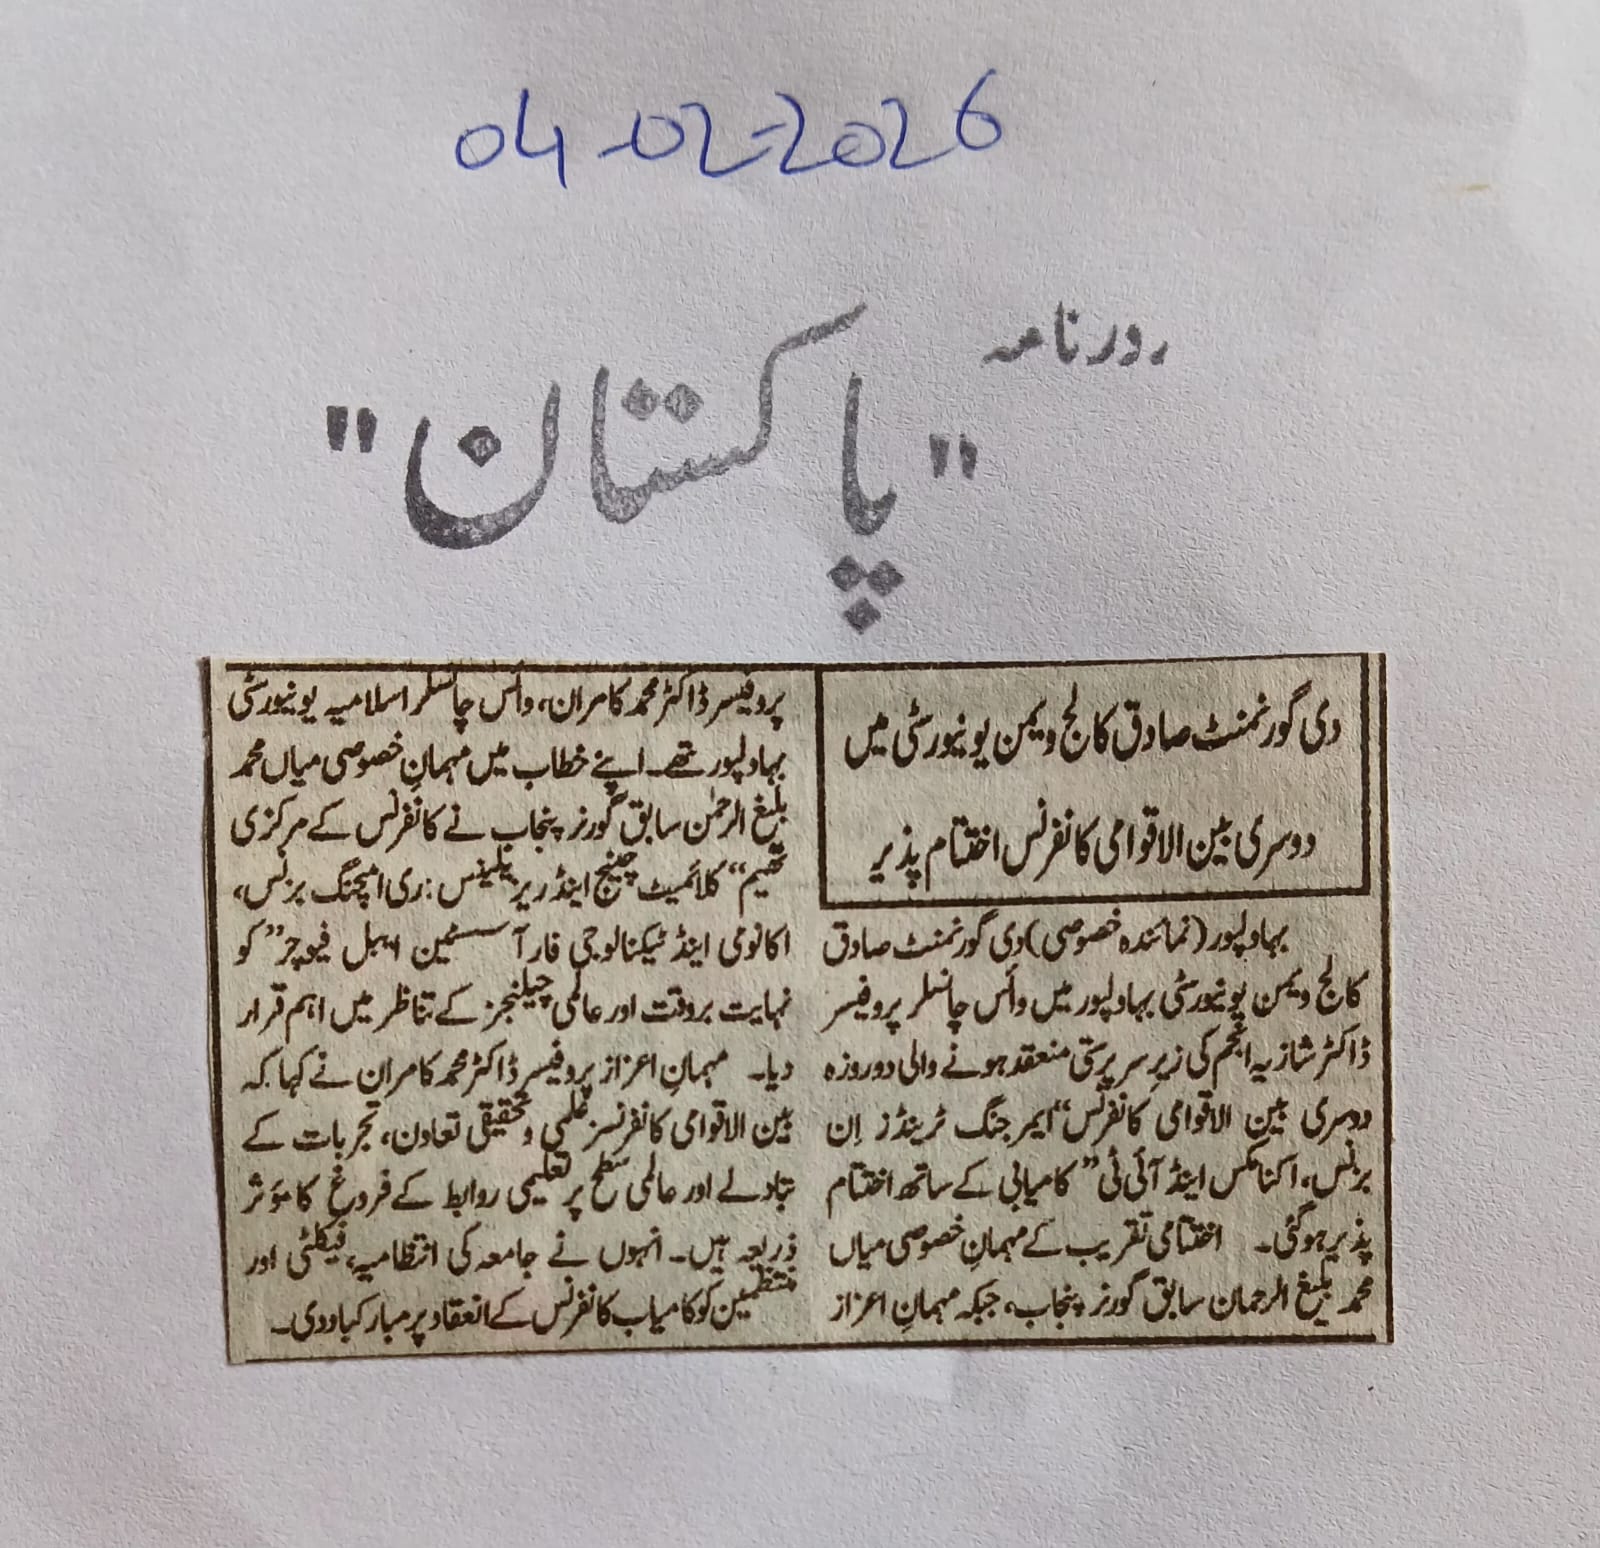 04-02-2026
روزنامہ
"پاکستان"
دی گورنمنٹ صادق کالج ویمن یونیورسٹی میں
دوسری بین الاقوامی کانفرنس اختتام پذیر
بہاولپور (نمائندہ خصوصی) دی گورنمنٹ صادق
کالج ویمن یونیورسٹی بہاولپور میں وائس چانسلر پروفیسر
ڈاکٹر شازیہ انجم کی زیرِ سرپرستی منعقد ہونے والی دو روزہ
دوسری بین الاقوامی کانفرنس “ایمرجنگ ٹرینڈز اِن
بزنس، اکنامکس اینڈ آئی ٹی” کامیابی کے ساتھ اختتام
پذیر ہوگئی۔ اختتامی تقریب کے مہمانِ خصوصی میاں
محمد بلیغ الرحمان سابق گورنر پنجاب، جبکہ مہمانِ اعزاز
پروفیسر ڈاکٹر محمد کامران، وائس چانسلر اسلامیہ یونیورسٹی
بہاولپور تھے۔ اپنے خطاب میں مہمانِ خصوصی میاں محمد
بلیغ الرحمٰن سابق گورنر پنجاب نے کانفرنس کے مرکزی
تھیم “کلائمیٹ چینج اینڈ ریزیلینس: ری امیجنگ بزنس،
اکانومی اینڈ ٹیکنالوجی فار آ سسٹین ایبل فیوچر” کو
نہایت بروقت اور عالمی چیلنجز کے تناظر میں اہم قرار
دیا۔ مہمانِ اعزاز پروفیسر ڈاکٹر محمد کامران نے کہا کہ
بین الاقوامی کانفرنسز علمی و تحقیقی تعاون، تجربات کے
تبادلے اور عالمی سطح پر تعلیمی روابط کے فروغ کا مؤثر
ذریعہ ہیں۔ انہوں نے جامعہ کی انتظامیہ، فیکلٹی اور
منتظمین کو کامیاب کانفرنس کے انعقاد پر مبارکباد دی۔